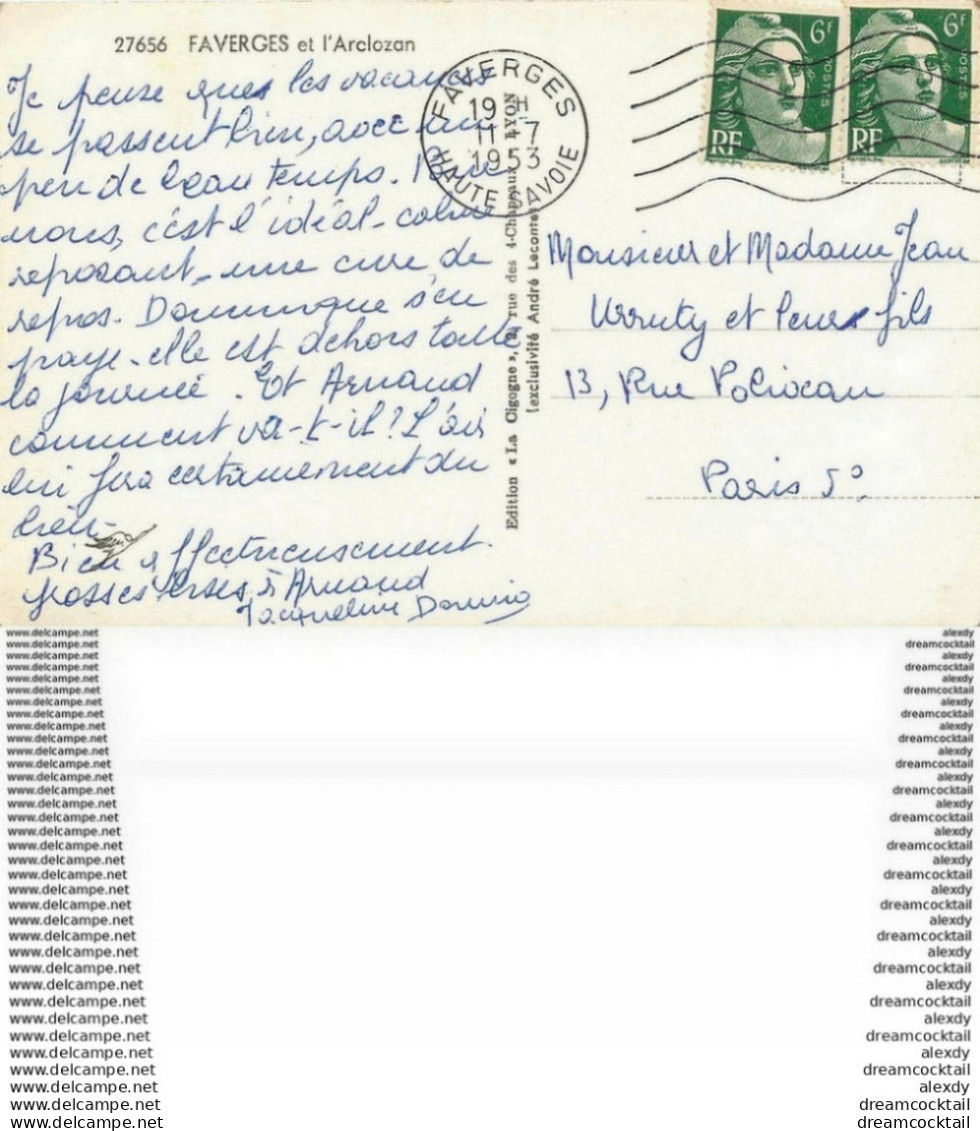 27656 FAVERGES et l'Arclozan
Je pense que les vacances
se passent bien, avec un
peu de beau temps. Pour
nous, c'est l'idéal - calme
reposant - une cure de
repos. Dominique s'en
paye - elle est dehors toute
la journée. Et Arnaud
comment va-t-il? L'air
lui fera certainement du
bien.
Bien affectueusement.
grosses bises à Arnaud
Jacqueline
FAVERGES
19 H
11 - 7
1953
HAUTE SAVOIE
Edition « La Cigogne », rue des 4-Chapeaux LYON
(exclusivité André Leconte)
6F
POSTES
RF
6F
POSTES
RF
Monsieur et Madame Jean
Urruty et leurs fils
13, Rue Poliveau
Paris 5°
www.delcampe.net alexdy
www.delcampe.net dreamcocktail
www.delcampe.net alexdy
www.delcampe.net dreamcocktail
www.delcampe.net alexdy
www.delcampe.net dreamcocktail
www.delcampe.net alexdy
www.delcampe.net dreamcocktail
www.delcampe.net alexdy
www.delcampe.net dreamcocktail
www.delcampe.net alexdy
www.delcampe.net dreamcocktail
www.delcampe.net alexdy
www.delcampe.net dreamcocktail
www.delcampe.net alexdy
www.delcampe.net dreamcocktail
www.delcampe.net alexdy
www.delcampe.net dreamcocktail
www.delcampe.net alexdy
www.delcampe.net dreamcocktail
www.delcampe.net alexdy
www.delcampe.net dreamcocktail
www.delcampe.net alexdy
www.delcampe.net dreamcocktail
www.delcampe.net alexdy
www.delcampe.net dreamcocktail
www.delcampe.net alexdy
www.delcampe.net dreamcocktail
www.delcampe.net alexdy
www.delcampe.net dreamcocktail
www.delcampe.net alexdy
www.delcampe.net dreamcocktail
www.delcampe.net alexdy
www.delcampe.net dreamcocktail
www.delcampe.net alexdy
www.delcampe.net dreamcocktail
www.delcampe.net dreamcocktail